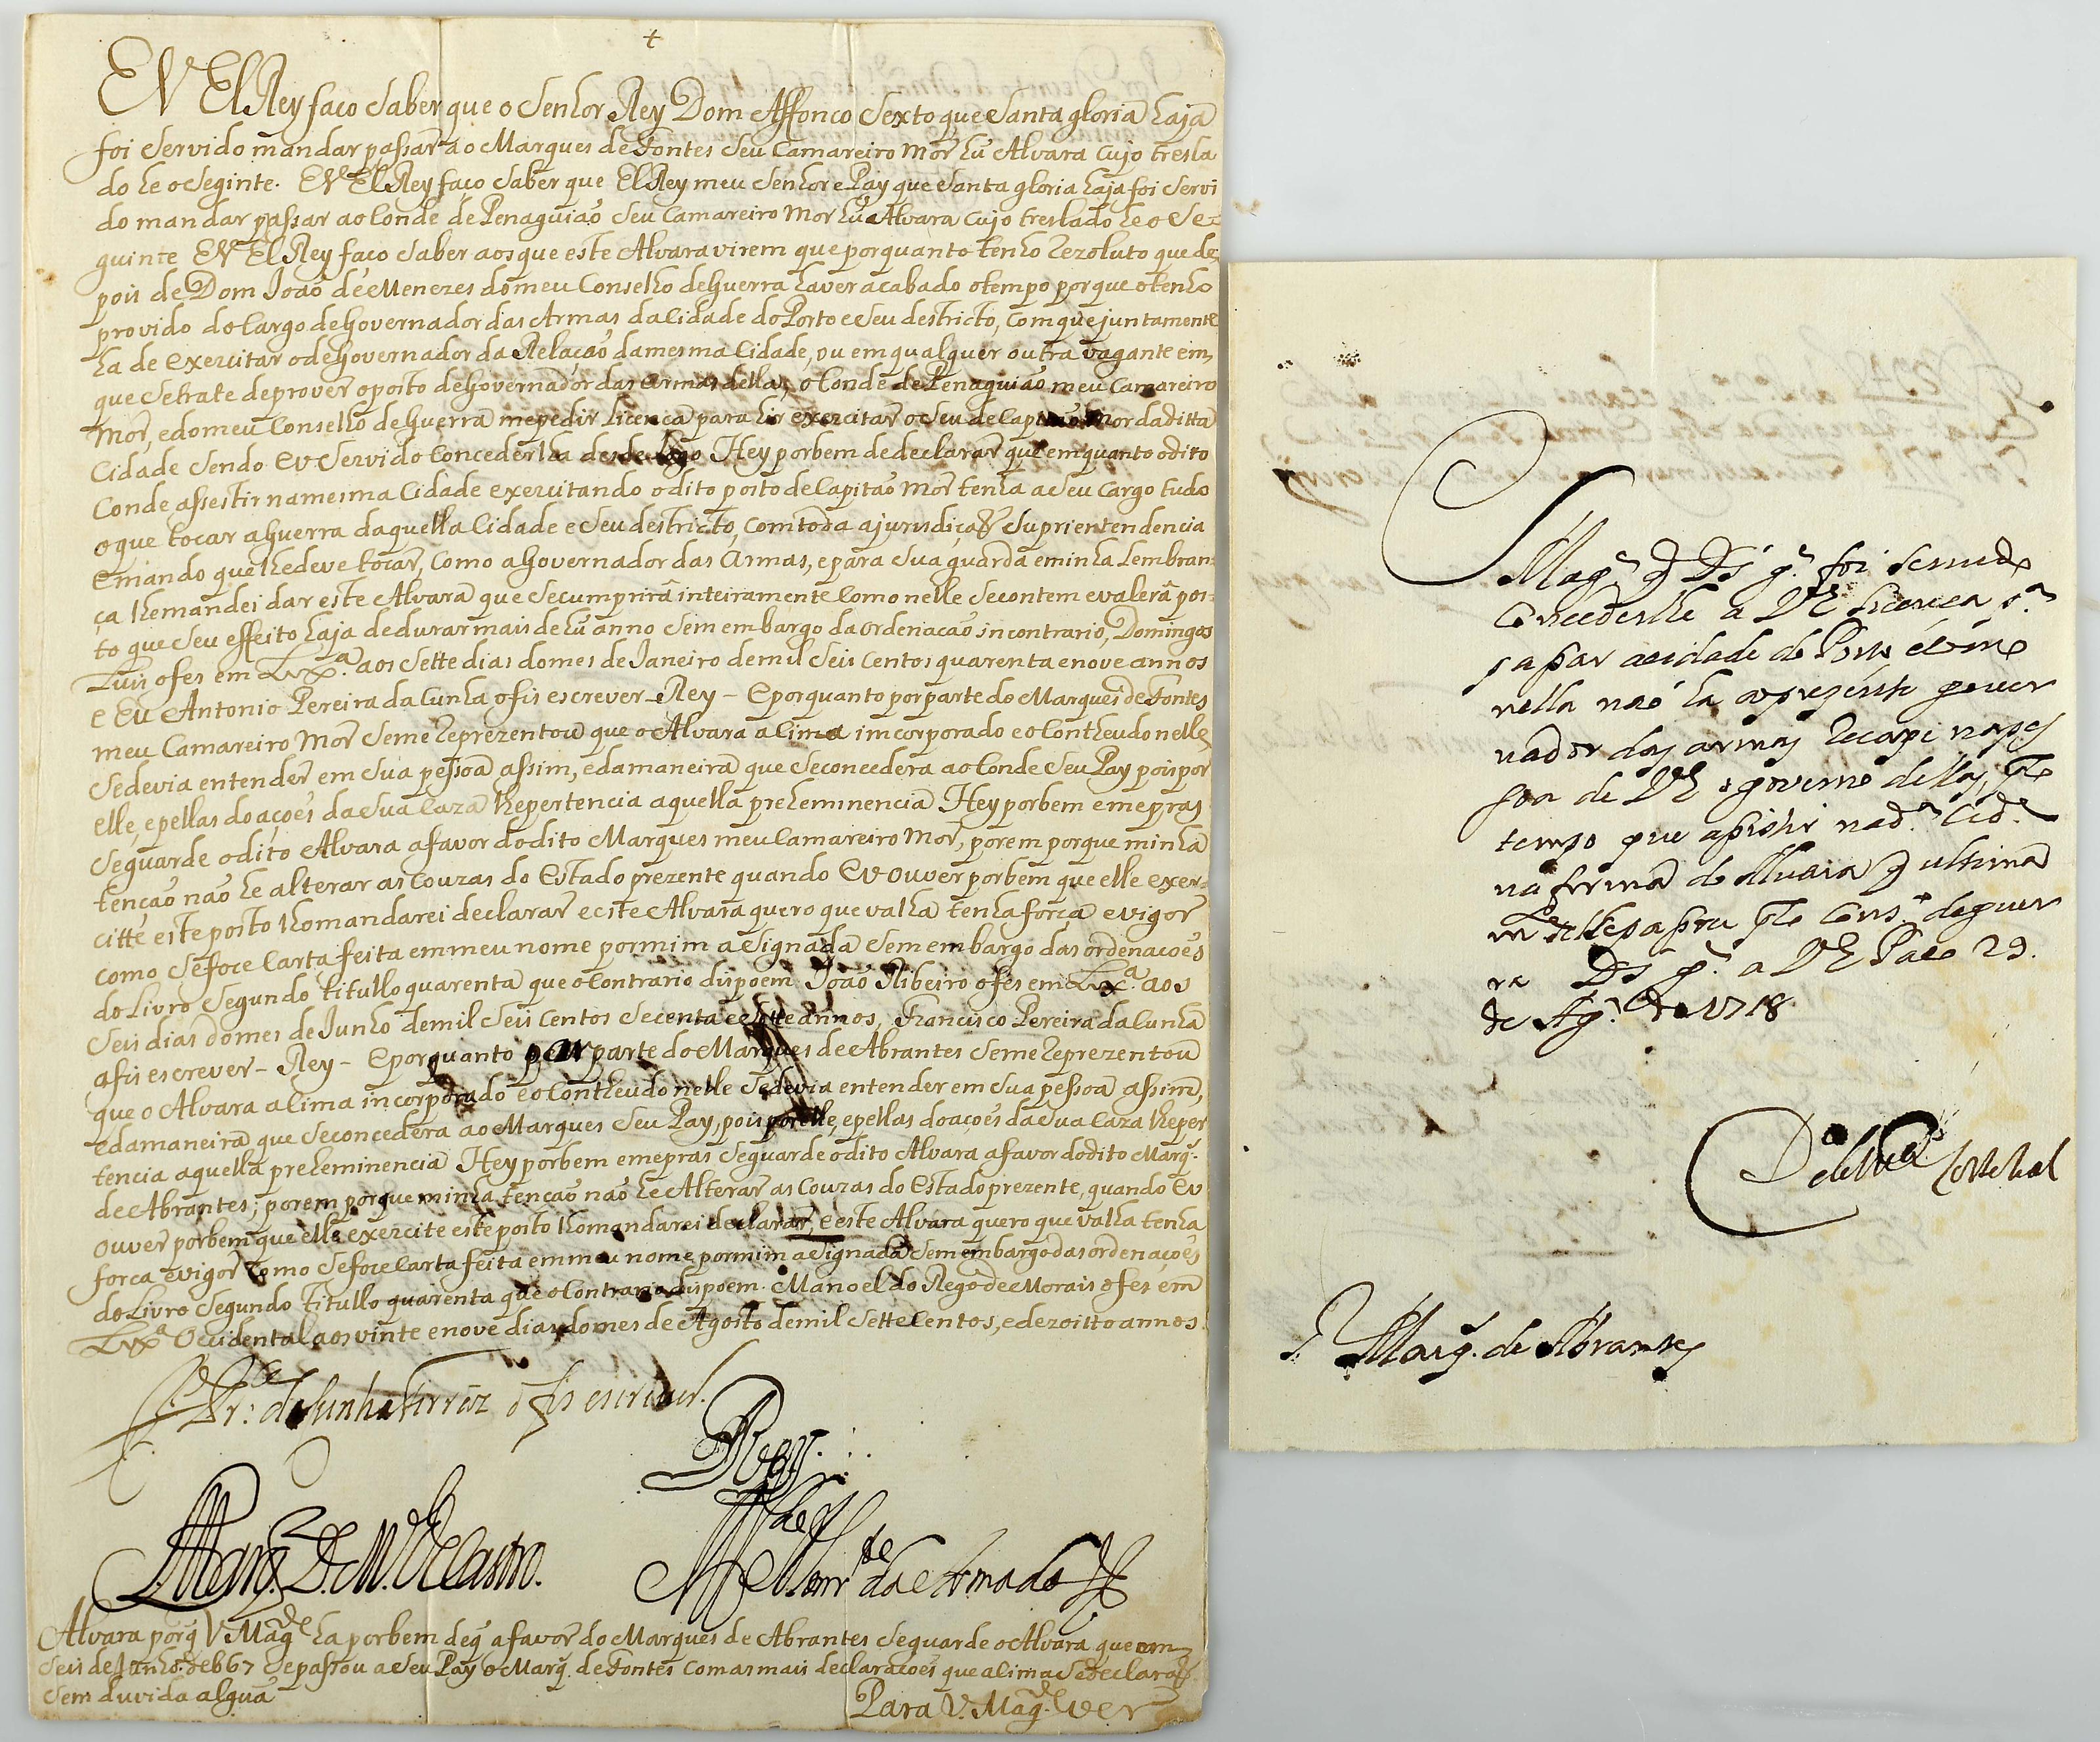 +
EV ElRey faço saber que o Senhor Rey Dom Affonco Sexto que Santa gloria haja
foi servido mandar passar ao Marques de Fontes seu Camareiro Mor hũ Alvara Cujo tresla
do he o seginte. EV ElRey faço saber que ElRey meu Senhor e Pay que Santa gloria haja foi servi
do mandar passar ao Conde de Penaguiaõ seu Camareiro Mor hũ Alvara Cujo treslado he o se=
guinte EV ElRey faço saber aos que este Alvara virem que porquanto tenho rezoluto que de
pois de Dom Joaõ de Menezes do meu Conselho de Guerra haver acabado o tempo por que o tenho
provido do Cargo de Governador das Armas da Cidade do Porto e seu destricto, com que juntamente
ha de exercitar o de Governador da Relacaõ da mesma Cidade, ou em qualquer outra vagante em
que se trate de prover o posto de Governador das armas dellas, o Conde de Penaguiaõ meu Camareiro
Mor, e do meu Conselho de Guerra me pedir licença para hir exercitar o seu de Capitaõ Mor da ditta
Cidade sendo Eu servido Concederlha desde logo Hey por bem de declarar que em quanto o dito
Conde assestir na mesma Cidade exercitando o dito posto de Capitaõ Mor tenha a seu Cargo tudo
o que tocar a Guerra daquella Cidade e seu destricto, com toda a jurisdiçaõ e suprientendencia
e mando que lhe deve tocar, como a Governador das Armas, e para sua guarda e minha lembran=
ça lhe mandei dar este Alvara que se cumprirá inteiramente como nelle se contem e valerá pos=
to que seu effeito haja de durar mais de hũ anno sem embargo da ordenacaõ in contrario, Domingos
Luis o fes em Lxx.ª aos sette dias do mes de Janeiro de mil seis centos quarenta e nove annos
e Eu Antonio Pereira da Cunha o fis escrever - Rey - E porquanto por parte do Marques de Fontes
meu Camareiro Mor se me reprezentou que o Alvara acima imcorporado e o Contheudo nelle
se devia entender em sua pessoa assim, e da maneira que se concedera ao Conde seu Pay pois por
elle, e pellas doaçoes da sua Caza lhe pertencia aquella preheminencia Hey por bem e me pras
se guarde o dito Alvara a favor do dito Marques meu Camareiro Mor, porem porque minha
tençaõ naõ he alterar as Couzas do Estado prezente quando Eu ouver por bem que elle exer=
citte este posto lho mandarei declarar e este Alvara quero que valha tenha força e vigor
como se foce Carta feita em meu nome por mim asignada sem embargo das ordenaçoes
do Livro segundo titullo quarenta que o Contrario dispoem Joaõ Ribeiro o fes em Lxx.ª aos
seis dias do mes de Junho de mil seis centos secenta e sette annos, Francisco Pereira da Cunha
o fis escrever - Rey - E porquanto por parte do Marques de Abrantes se me reprezentou
que o Alvara acima incorporado e o Contheudo nelle se devia entender em sua pessoa assim,
e da maneira que se concedera ao Marques seu Pay, pois por elle, e pellas doaçoes da sua Caza lhe per
tencia aquella preheminencia Hey por bem e me pras se guarde o dito Alvara a favor do dito Marq.
de Abrantes; porem porque minha tencaõ naõ he Alterar as Couzas do Estado prezente, quando Eu
ouver por bem que elle exercite este posto lho mandarei declarar, e este Alvara quero que valha tenha
forca e vigor como se foce Carta feita em meu nome por mim asignada sem embargo das ordenaçoes
do Livro segundo Titullo quarenta que o Contrario dispoem. Manoel do Rego de Morais o fes em
Lxx.ª Occidental aos vinte e nove dias do mes de Agosto de mil sette Centos, e dezoitto annos.
da Cunha o fis escrever.
Rey
Marq. D. M. de Castro.
Alvara porq̃ V Mag.de ha por bem deq̃ a favor do Marques de Abrantes se guarde o Alvara que em
seis de Junho de 667 se passou a seu Pay o Marq. de Fontes com as mais declaracoes que acima se declara
sem duvida algũa
Para V. Mag.de ver
S Mag.de q̃ D.s g.de foi servido
concederlhe a V E licença p.ª
passar a cidade do Porto e como
nella naõ ha ao prezente gover
nador das armas recaye na pes
soa de V E o governo dellas, pelo
tempo que assistir na d.ª Cid.e
na forma do Alvara q̃ ultima
m.te se lhe passou pelo Cons.o de guer
ra D.s g.de a V E Paço 29.
de Ag.to de 1718
S.r Marq. de Abrantes